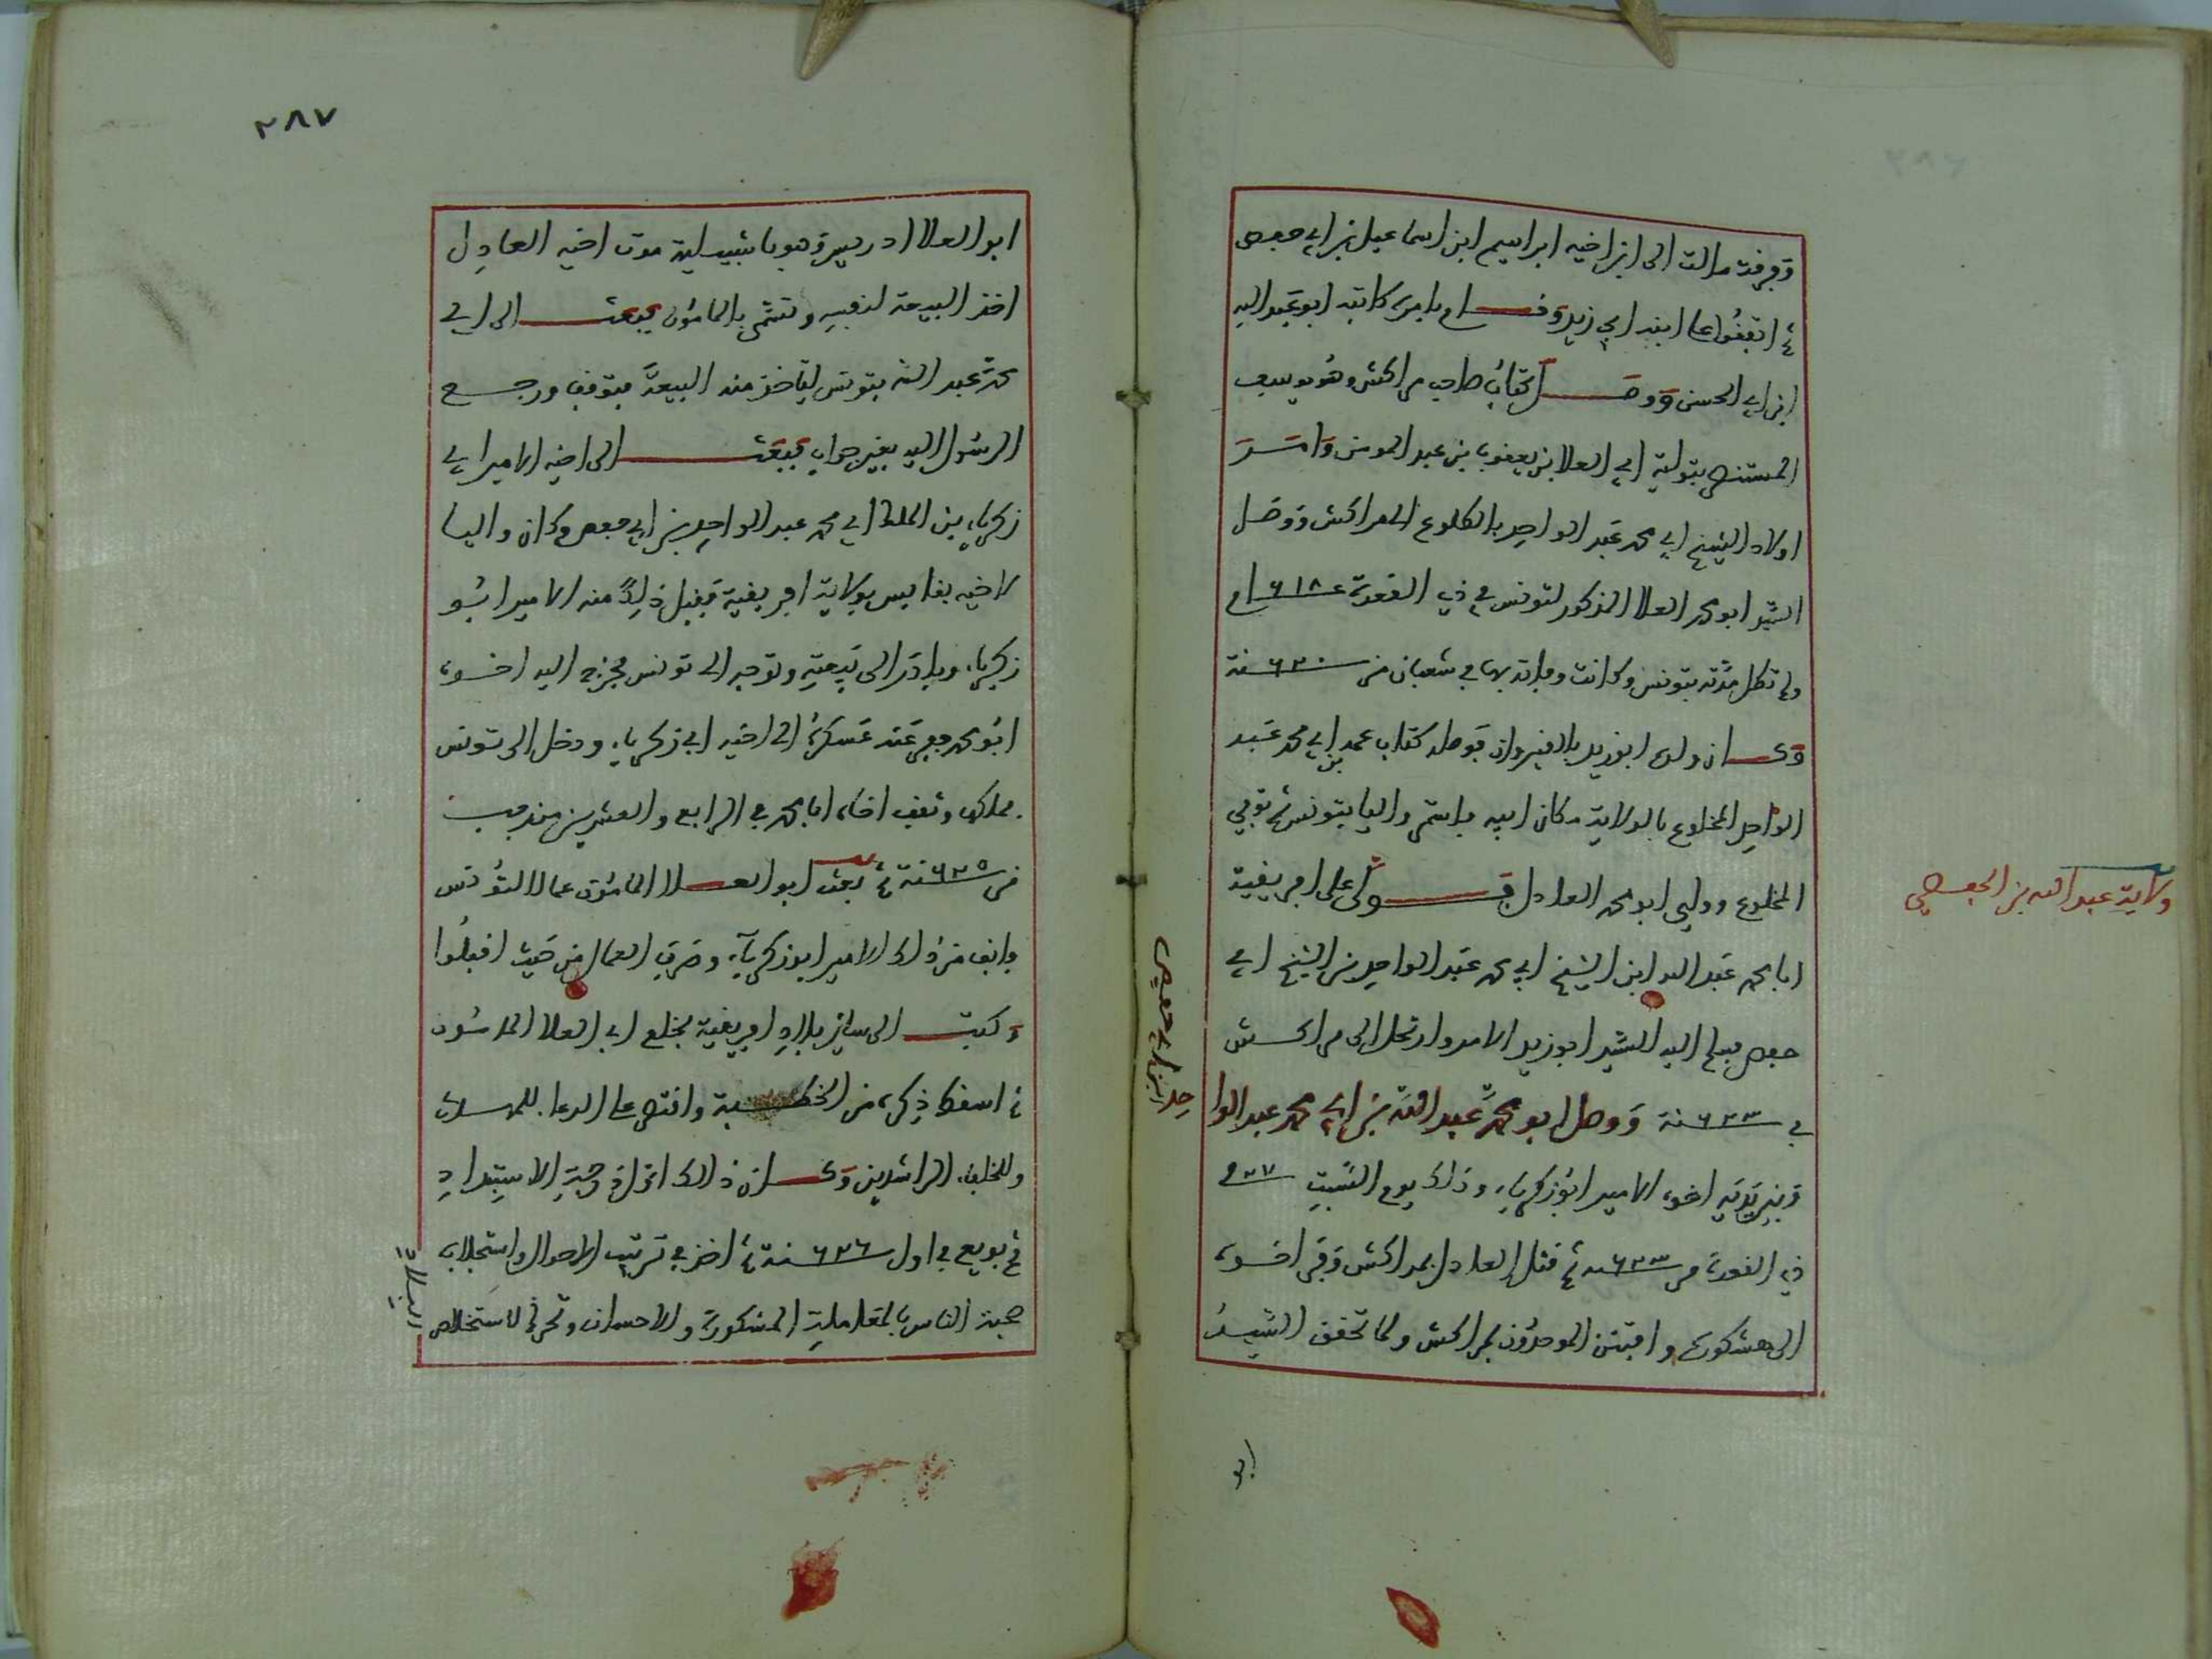 وفرقة مالت الى ابن اخيه ابراهيم ابن اسماعيل بن ابي حفص
ثم اتفقوا على ابنه ابي زيد وقام بامره كاتبه ابو عبد الله
ابن ابي الحسن ووصل كتاب صاحب مراكش وهو يوسف
المستنصر بتولية ابي العلا بن يعقوب بن عبد المومن وامر
اولاد الشيخ ابي محمد عبد الواحد بالطلوع الى مراكش ووصل
السيد ابو محمد العلا المذكور لتونس في ذي القعدة ٦١٨
ولم تطل مدته بتونس وكانت وفاته بها في شعبان من ٦٢٠ سنة
وكان ولده ابو زيد بالقيروان فوصله كتاب عمه بن ابي محمد عبد
الواحد المخلوع بالولاية مكان ابيه فاستمر واليا بتونس ثم توفي
المخلوع وولي ابو محمد العادل فولى على افريقية
ابا محمد عبد الله ابن الشيخ ابي محمد عبد الواحد بن الشيخ ابي
حفص فسلم اليه السيد ابو زيد الامر وارتحل الى مراكش
في ٦٢٣ سنة ووصل ابو محمد عبد الله بن ابي محمد عبد الوا
حد بن ابي حفص
وبين يديه اخوه الامير ابو زكرياء وذلك يوم السبت ١٧
ذي القعدة من ٦٢٣ سنة ثم قتل العادل بمراكش وفر اخوه
الى هشكورة وافتتن الموحدون بمراكش ولما تحقق السيد
ابو
ولاية عبد الله بن الحفصي
٢٨٧
ابو العلا ادريس وهو باشبيلية موت اخيه العادل
اخذ البيعة لنفسه وتسمى بالمامون فبعث الى ابي
محمد عبد الله بتونس لياخذ منه البيعة فتوقف ورجع
الرسول اليه بغير جواب فبعث الى اخيه الامير ابي
زكرياء بن ابي محمد عبد الواحد بن ابي حفص وكان واليا
لاخيه بقابس بولاية افريقية فقبل ذلك منه الامير ابو
زكرياء وبادر الى بيعته وتوجه الى تونس فخرج اليه اخوه
ابو محمد ففر عنه عسكره الى اخيه ابي زكرياء ودخل الى تونس
فملكها وثقف اخاه ابا محمد في الرابع والعشرين من رجب
من ٦٢٥ سنة ثم بعث ابو العلا المامون عمالا لتونس
وانف من ذلك الامير ابو زكرياء وصرف العمال من حيث اقبلوا
وكتب الى ساير بلاد افريقية بخلع ابي العلا المامون
ثم اسقط ذكره من الخطبة واقتصر على الدعا للمهدي
وللخلفاء الراشدين وكان ذلك اول درجة الاستبداد
ثم بويع في اول ٦٢٦ سنة ثم اخذ في ترتيب الاحوال واستجلاب
محبة الناس بالمعاملة المشكورة والاحسان وتحرك لاستخلاص
البلاد